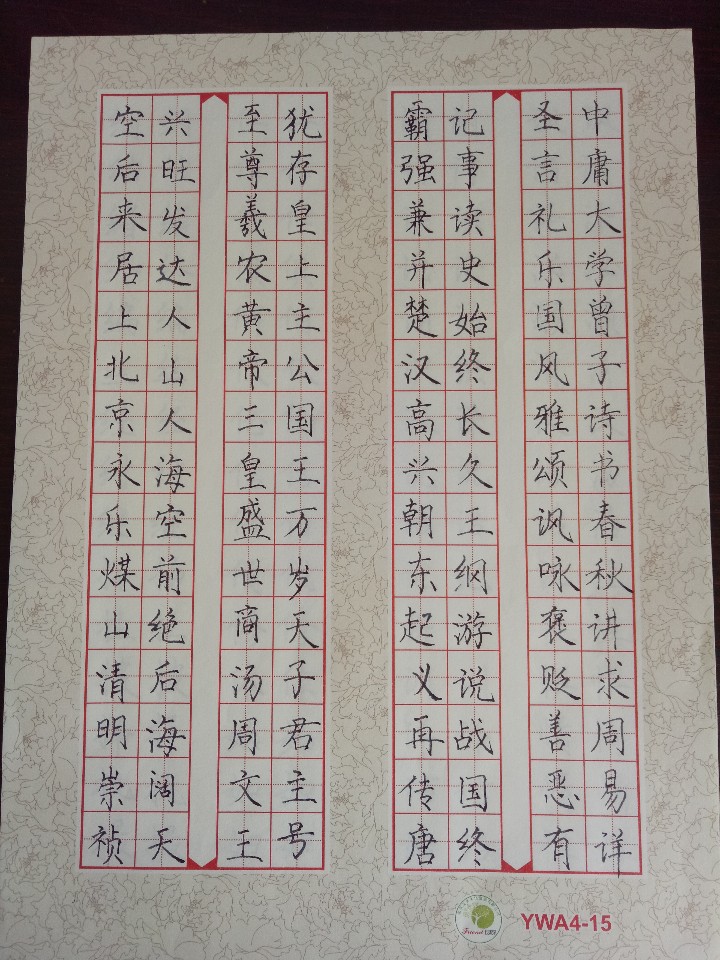 中庸大学曾子诗书春秋讲求周易详
圣言礼乐国风雅颂讽咏褒贬善恶有
记事读史始终长久王纲游说战国终
霸强兼并楚汉高兴朝东起义再传唐
犹存皇上主公国王万岁天子君主号
至尊羲农黄帝三皇盛世商汤周文王
兴旺发达人山人海空前绝后海阔天
空后来居上北京永乐煤山清明崇祯
Friend
YWA4-15